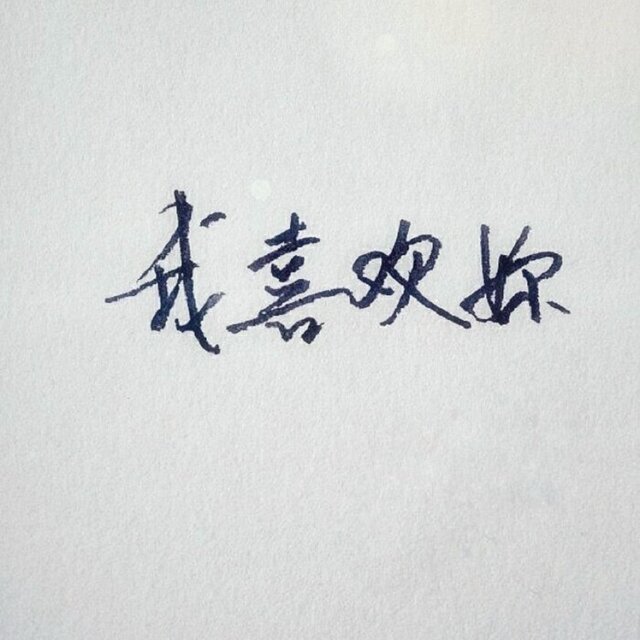 我喜欢妳